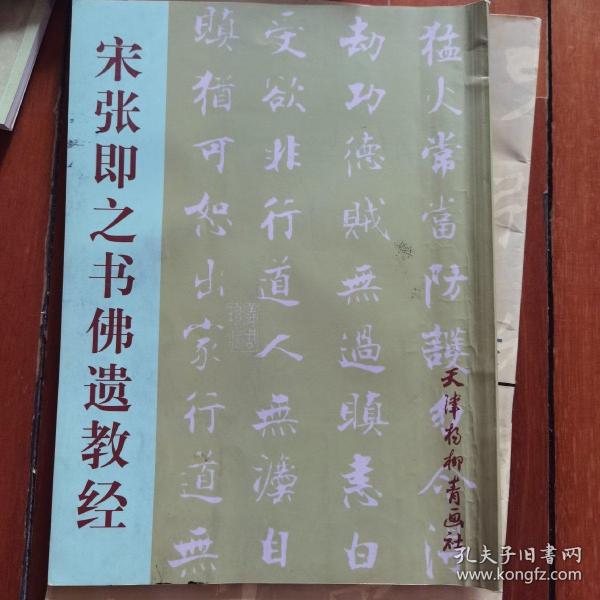 宋张即之书佛遗教经
猛火常當防護
劫功德賊無過瞋恚白
受欲非行道人無
自
瞋猶可恕出家行道無
天津杨柳青画社
孔夫子旧书网
www.kongfz.com